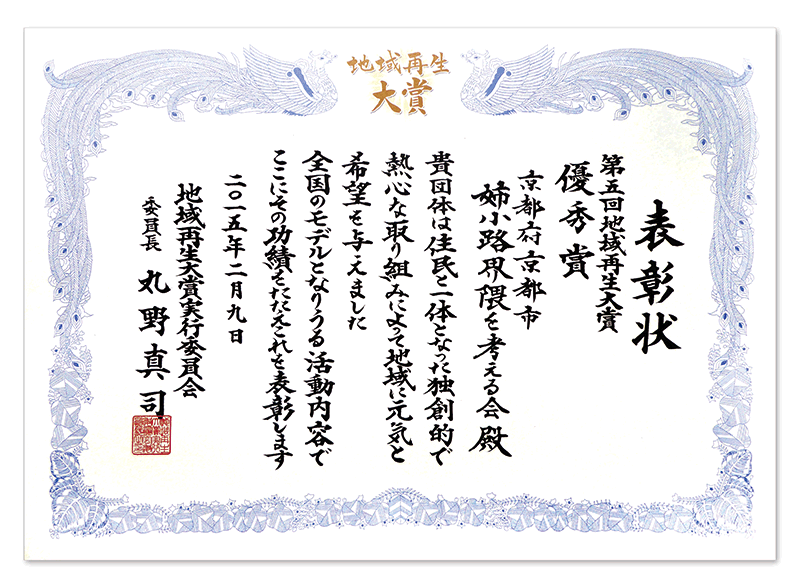 地域再生
大賞
表彰状
第五回地域再生大賞
優秀賞
京都府京都市
姉小路界隈を考える会 殿
貴団体は住民と一体となった独創的で
熱心な取り組みによって地域に元気と
希望を与えました
全国のモデルとなりうる活動内容で
ここにその功績をたたえこれを表彰します
二〇一五年二月九日
地域再生大賞実行委員会
委員長 丸野真司